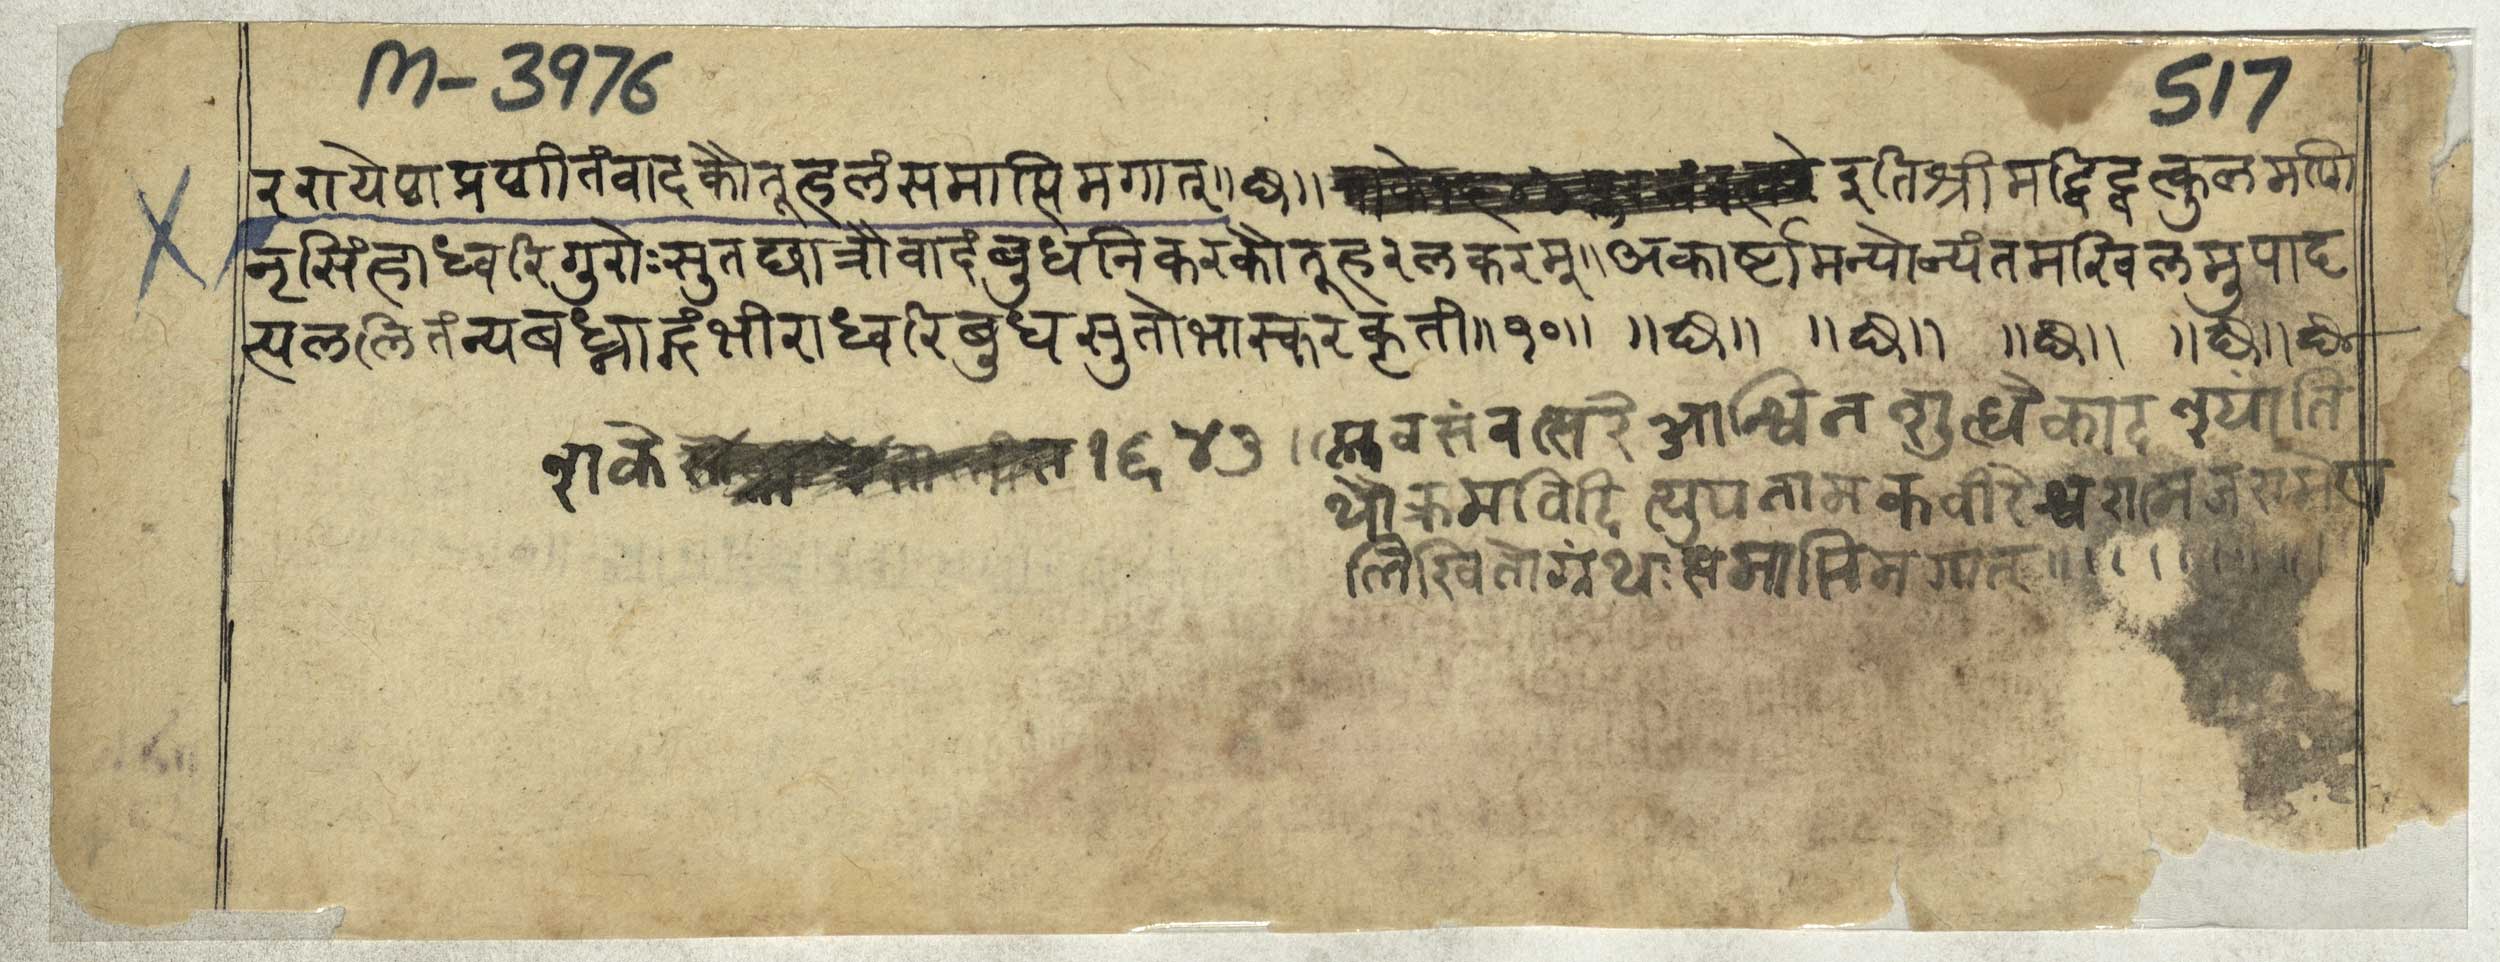 M-3976 517
ररायेणाप्रणीतंवादकौतूहलंसमाप्तिमगात्॥छ॥ इतिश्रीमद्विद्वत्कुलमणि
नृसिंहाध्वरिगुरोःसुतछात्रौवादंबुधनिकरकौतूहरलकरम्॥अकार्ष्टामन्योन्यंतमखिलमुपाद
त्यललितंन्यबध्नाद्गंभीराध्वरिबुधसुतोभास्करकृती॥१०॥ ॥छ॥ ॥छ॥ ॥छ॥ ॥छ॥छ
शाके १६४३ ॥प्लवसंवत्सरेआश्विनशुध्धैकादश्यांति
थौक्रमविदित्युपनामकवीरेश्वरात्मजरामेण
लिखितोग्रंथःसमाप्तिमगात्॥